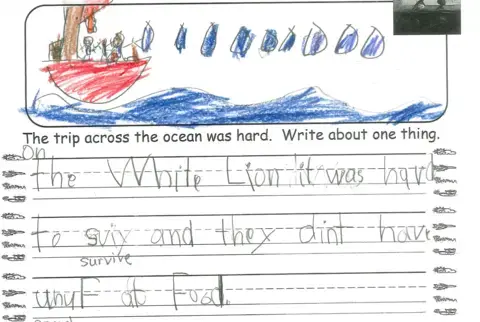 The trip across the ocean was hard. Write about one thing.
on
the White Lion it was hard
to sviv and they dint have
survive
unuF at Food.